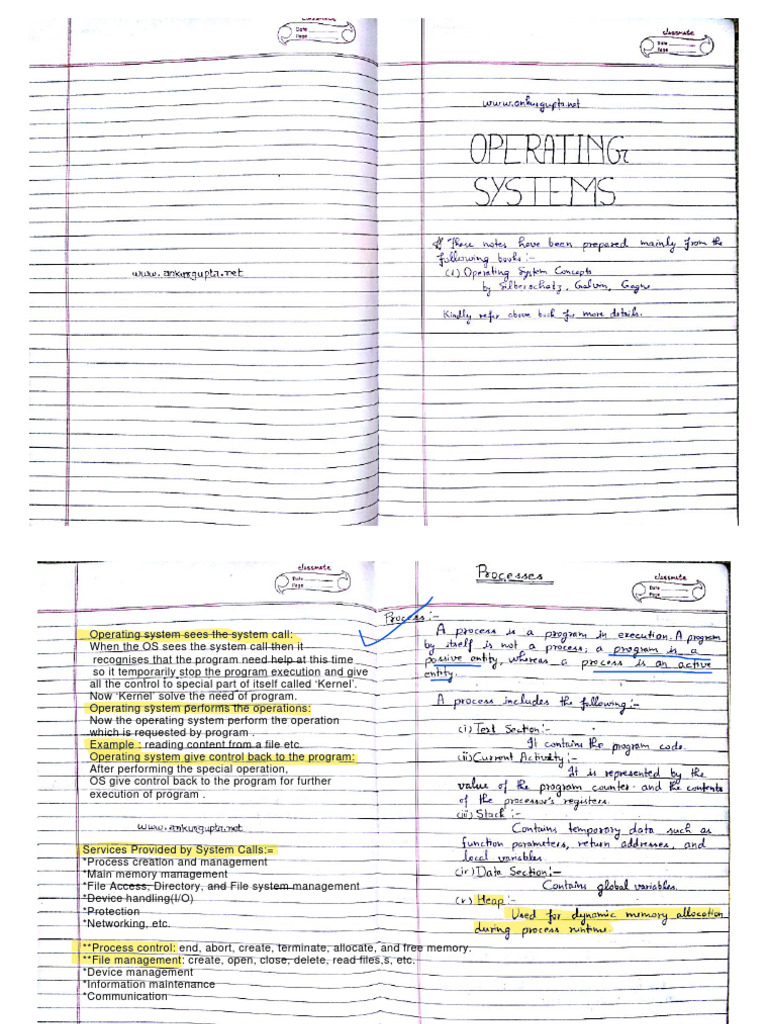 classmate
Date
Page
classmate
Date
Page
www.ankurgupta.net
OPERATING
SYSTEMS
# These notes have been prepared mainly from the
following books:-
(1) Operating System Concepts
by Silberschatz, Galvin, Gagne
Kindly refer above book for more details.
www.ankurgupta.net
classmate
Date
Page
Operating system sees the system call:
When the OS sees the system call then it
recognises that the program need help at this time
so it temporarily stop the program execution and give
all the control to special part of itself called 'Kernel'.
Now 'Kernel' solve the need of program.
Operating system performs the operations:
Now the operating system perform the operation
which is requested by program .
Example : reading content from a file etc.
Operating system give control back to the program:
After performing the special operation,
OS give control back to the program for further
execution of program .
www.ankurgupta.net
Services Provided by System Calls:=
*Process creation and management
*Main memory management
*File Access, Directory, and File system management
*Device handling(I/O)
*Protection
*Networking, etc.
**Process control: end, abort, create, terminate, allocate, and free memory.
**File management: create, open, close, delete, read files,s, etc.
*Device management
*Information maintenance
*Communication
Processes
classmate
Date
Page
Process:-
A process is a program in execution. A program
by itself is not a process, a program is a
passive entity, whereas a process is an active
entity.
A process includes the following:-
(i) Text Section:-
It contains the program code.
(ii) Current Activity:-
It is represented by the
value of the program counter and the contents
of the processor's registers.
(iii) Stack:-
Contains temporary data such as
function parameters, return addresses, and
local variables
(iv) Data Section:-
Contains global variables.
(v) Heap:-
Used for dynamic memory allocation
during process runtime.